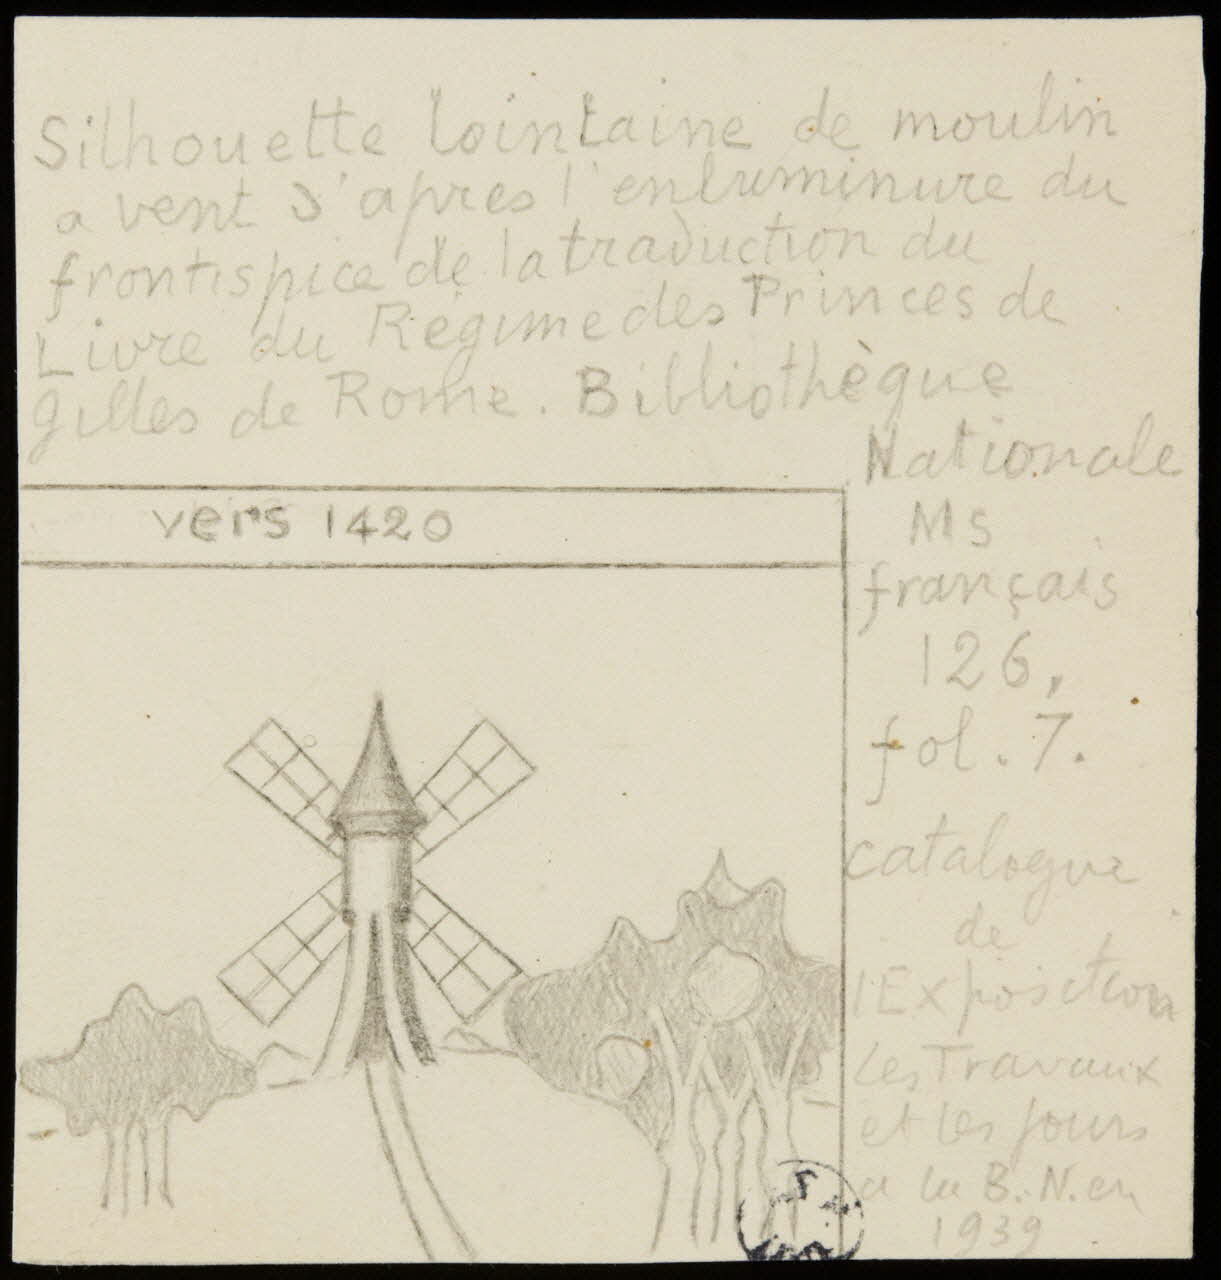 Silhouette lointaine de moulin
a vent d'après l'enluminure du
frontispice de la traduction du
Livre du Régime des Princes de
Gilles de Rome. Bibliothèque
Nationale
Ms
français
126,
fol. 7.
catalogue
de
l'Exposition
Les Travaux
et les jours
a la B.N. en
1939
vers 1420